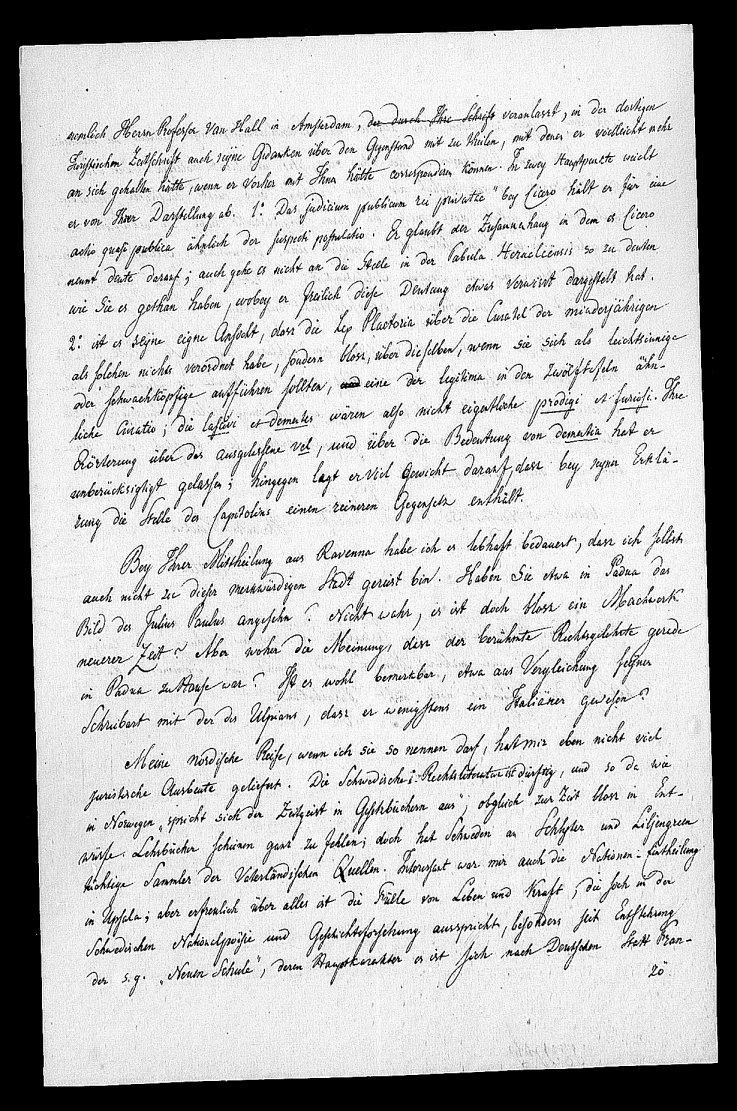 nemlich Herrn Professor Van Hall in Amsterdam, der durch Ihre Schrift veranlasst, in der dortigen
Juristischen Zeitschrift auch seyne Gedanken über den Gegenstand mit zu theilen, mit denen er vielleicht mehr
an sich gehalten hätte, wenn er vorher mit Ihnen hätte correspondiren können. In zwey Hauptpuncte weicht
er von Ihrer Darstellung ab. 1.° Das „judicium publicum rei privatae" bey Cicero hält er für eine
actio quasi publica ähnlich der suspecti postulatio. Er glaubt der Zusammenhang in dem es Cicero
nennt deute darauf; auch gehe es nicht an die Stelle in der Tabula Heracleensis so zu deuten
wie Sie es gethan haben, wobey er freilich diese Deutung etwas verwirrt dargestelt hat.
2.° ist es seyne eigne Ansicht, dass die Lex Plaetoria über die Curatel der minderjährigen
als solchen nichts verordnet habe, sondern bloss über dieselben, wenn sie sich als leichtsinnige
oder schwachköpfige aufführen sollten, und eine der legitima in den Zwölftafeln ähn-
liche Curatio; die lascivi et dementes wären also nicht eigentliche prodigi et furiosi. Ihre
Erörterung über das ausgelassene vel, und über die Bedeutung von dementia hat er
unberücksigtigt gelassen; hingegen legt er viel Gewicht darauf, dass bey seyner Erklä-
rung die Stelle des Capitolins einen reineren Gegensetz enthält.
Bey Ihrer Mittheilung aus Ravenna habe ich es lebhaft bedauert, dass ich selbst
auch nicht zu dieser merkwürdigen Stadt gereist bin. Haben Sie etwa in Padua das
Bild des Julius Paulus angesehn? Nicht wahr, es ist doch bloss ein Machwerk
neuerer Zeit? Aber woher die Meinung, dass der berühmte Rechtsgelehrte gerade
in Padua zu Hause war? Ist es wohl bemerkbar, etwa aus Vergleichung seyner
Schreibart mit der des Ulpians, dass er wenigstens ein Italiäner gewesen?
Meine nordische Reise, wenn ich sie so nennen darf, hat mir eben nicht viel
juristische Ausbeute geliefert. Die Schwedische Rechtsliteratur ist dürftig, und so da wie
in Norwegen „spricht sich der Zeitgeist in Gesetzbüchern aus", obgleich zur Zeit bloss in Ent-
würfe. Lehrbücher scheinen ganz zu fehlen; doch hat Schweden an Schlyter und Liljengreen
tüchtige Sammler der Vaterländischen Quellen. Interessant war mir auch die Nationen-Eintheilung
in Upsala; aber erfreulich über alles ist die Fülle von Leben und Kraft, die sich in der
Schwedischen Nationalpoësie und Geschichtsforschung ausspricht, besonders seit Entstehung
der s.g. „Neuen Schule", deren Hauptkarakter es ist sich nach Deutschen statt Fran-
zö